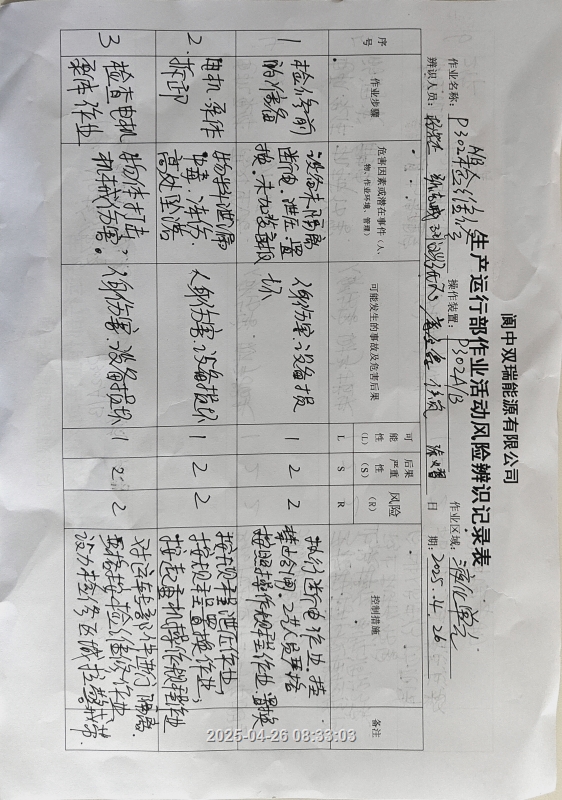 阆中双瑞能源有限公司
生产运行部作业活动风险辨识记录表
作业名称：P302A/B检维修 操作装置：P302A/B 作业区域：液化单元
辨识人员： 日 期：2025.4.26
序号 作业步骤 危害因素或潜在事件（人、物、作业环境、管理） 可能发生的事故及危害后果 可能性（L） 后果严重性（S） 风险（R） 控制措施 备注
L S R
1 检修前的准备 设备未隔离 断电、泄压、置换。未加盲板 人身伤害、设备损坏 1 2 2 执行断电作业，挂禁止合闸，工艺人员严格按照操作规程作业、置换
2. 电机、泵体拆卸 物料泄漏 中毒、冻伤、高处坠落 人身伤害、设备损坏 1 2 2 按规程泄压作业，按规程置换作业；按起重机操作规程作业
3 检查电机泵体作业 物体打击，机械伤害。 人身伤害、设备损坏 1 2 2 对运转部件进行隔离。严格按检修作业 设为检修区域
2025-04-26 08:33:03